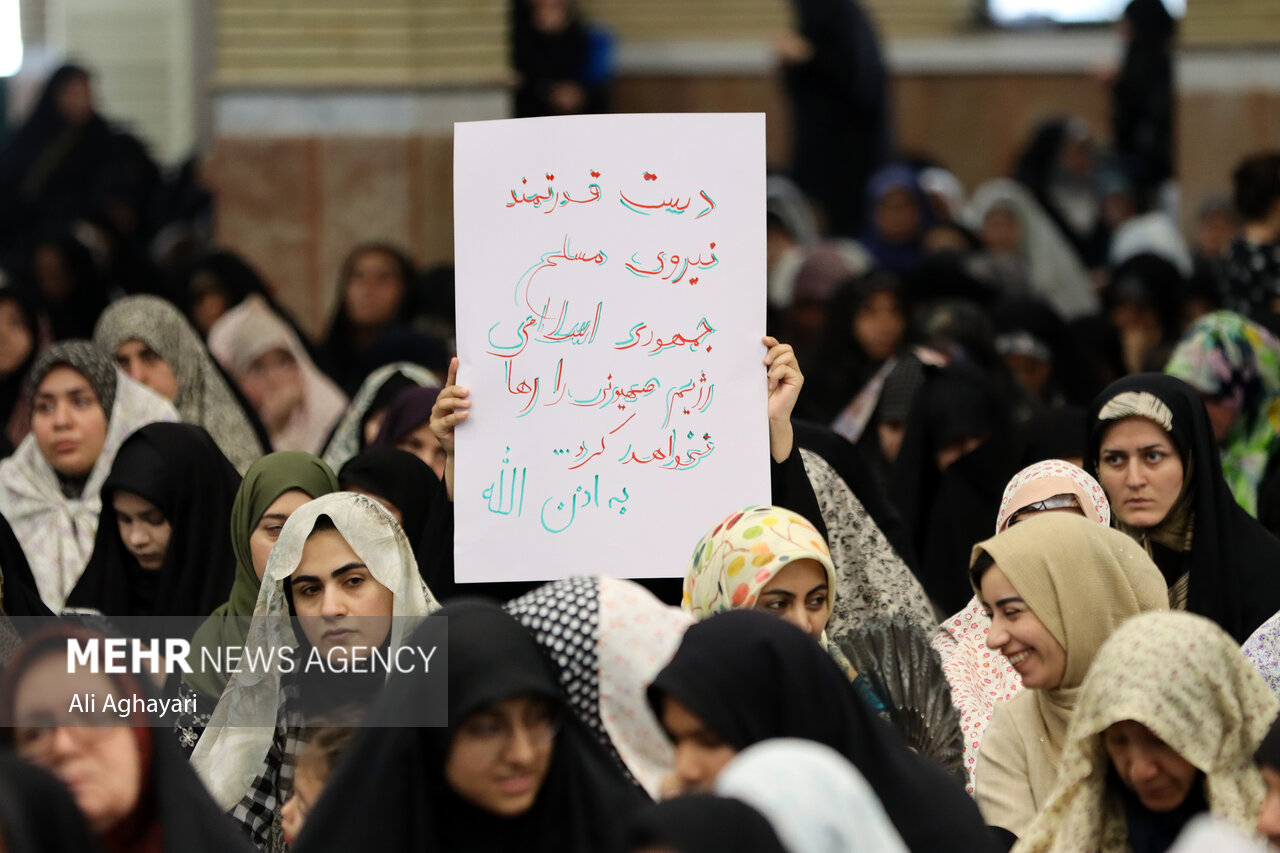 دست قدرتمند
نیروی مسلح
جمهوری اسلامی
رژیم صهیونی را رها
نخواهد کرد...
به اذن الله
MEHR NEWS AGENCY
Ali Aghayari